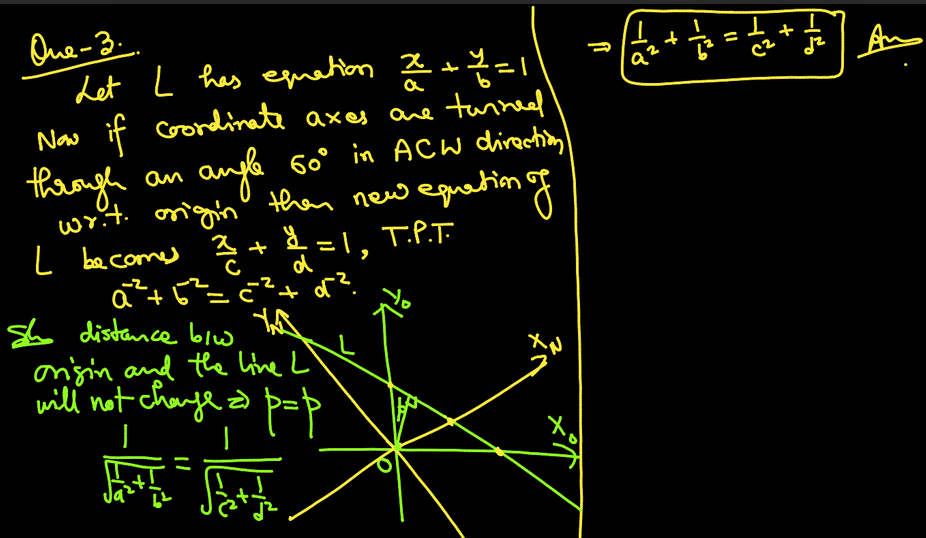 Que-3.
Let L has equation x/a + y/b = 1
Now if coordinate axes are turned
through an angle 60° in ACW direction
w.r.t. origin then new equation of
L becomes x/c + y/d = 1, T.P.T.
a⁻² + b⁻² = c⁻² + d⁻².
Sln distance b/w
origin and the line L
will not change ⇒ p = p
1/√(1/a² + 1/b²) = 1/√(1/c² + 1/d²)
Y_N
Y_O
L
X_N
p
X_O
O
⇒ 1/a² + 1/b² = 1/c² + 1/d² Ans